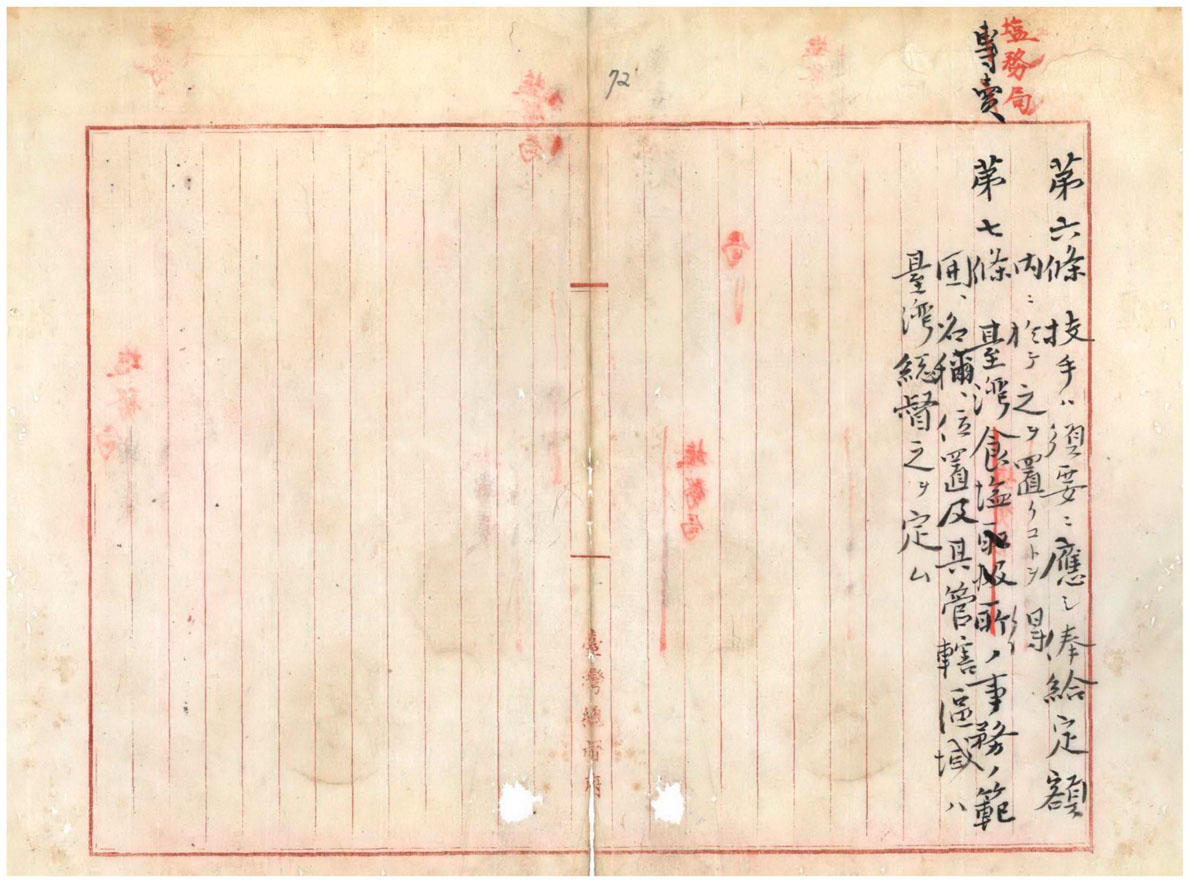 塩務局
專賣
第六條 技手ハ須要ニ應シ俸給定額
內ニ於テ之ヲ置クコトヲ得
第七條 臺灣食塩取扱所ノ事務ノ範
囲、名稱、位置及其管轄區域ハ
臺灣総督之ヲ定ム
72
臺灣總督府